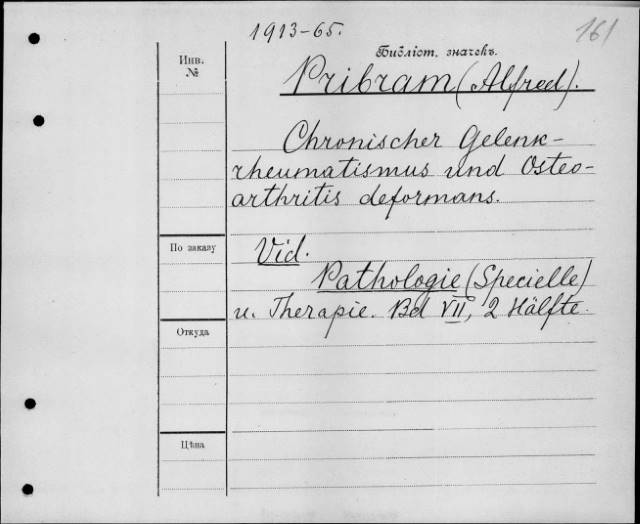 1913-65.
161
Инв.
№
Библіот. значекъ.
Pribram (Alfred).
Chronischer Gelenk-
rheumatismus und Osteo-
arthritis deformans.
По заказу
Vid.
Pathologie (Specielle)
u. Therapie. Bd VII, 2 Hälfte.
Откуда
Цѣна